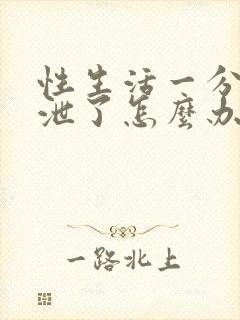 性生活一分
泄了怎麼办
一路北上